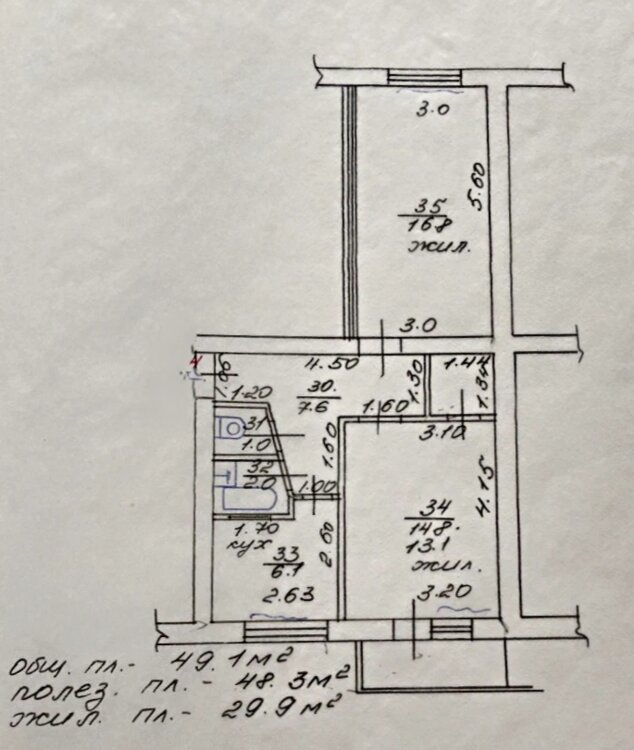 3.0
5.60
35
16.8
жил.
3.0
4
1.06
4.50
1.44
30.
7.6
1.30
1.34
1.20
1.60
31
1.0
1.60
3.10
32
2.0
1.00
4.15
34
14.8.
13.1
жил.
1.70
кух
33
6.1
2.60
2.63
3.20
общ. пл.- 49.1 м²
полез. пл. - 48.3 м²
жил. пл.- 29.9 м²